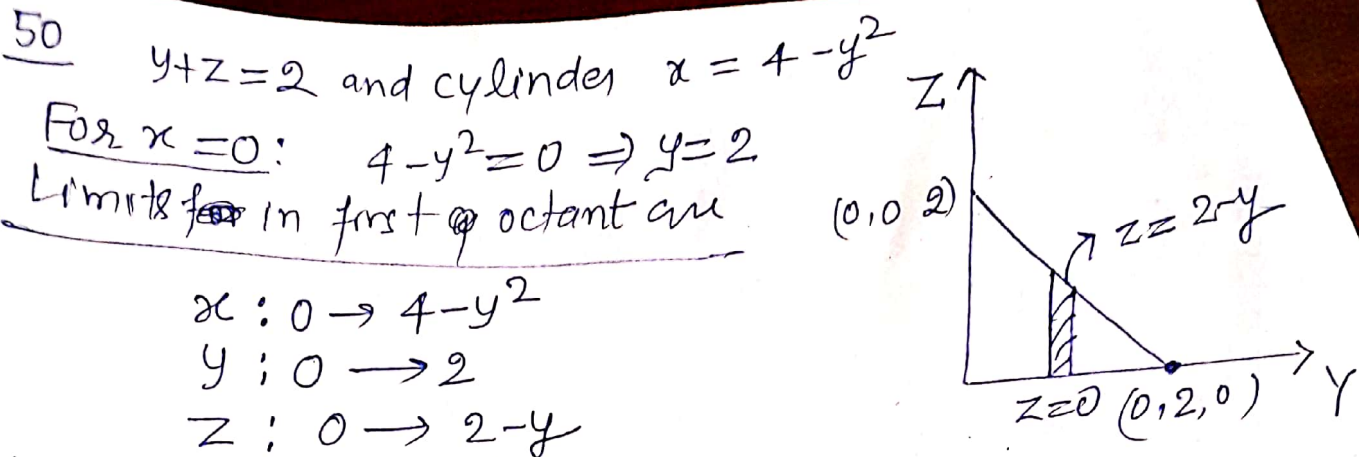 50
y+z=2 and cylinder x = 4-y²
For x=0: 4-y²=0 ⇒ y=2
Limits in first octant are
x : 0 → 4-y²
y : 0 → 2
z : 0 → 2-y
Z
(0,0 2)
z= 2-y
z=0 (0,2,0)
Y